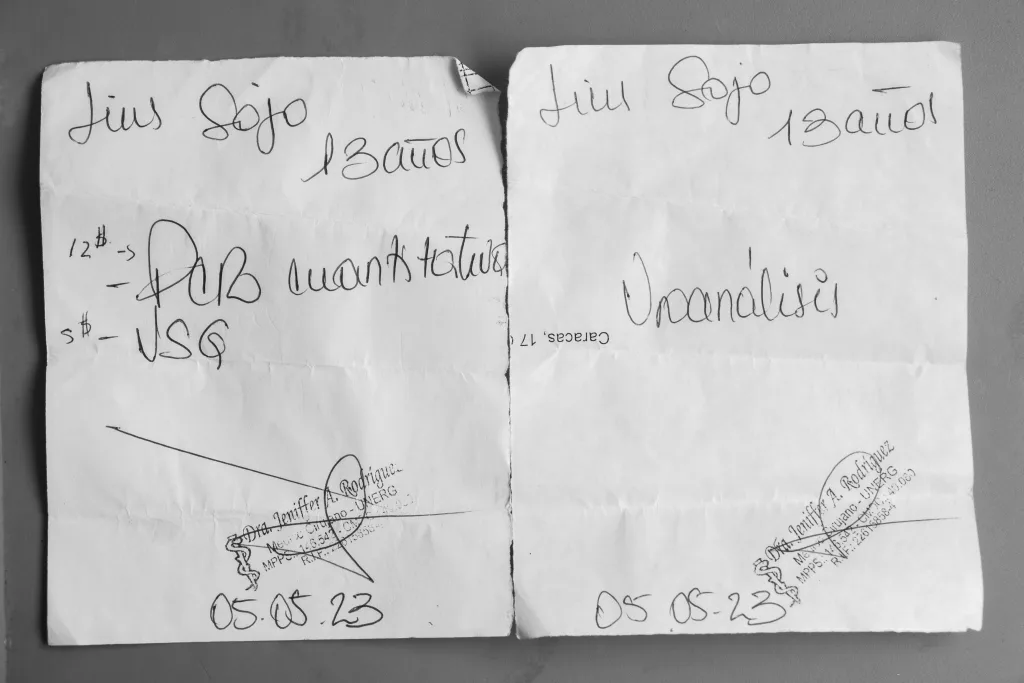 Luis Sojo
13 años
12$ →
- PCR cuantitativa
5$ - VSG
Dra. Jeniffer A. Rodríguez
Médico Cirujano - UNERG
05.05.23
Luis Sojo
13 años
Uroanálisis
Caracas, 17
Dra. Jeniffer A. Rodríguez
Médico Cirujano - UNERG
05.05.23